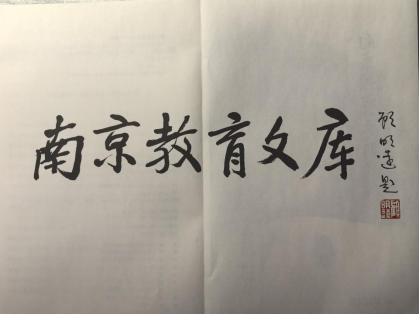 南京教育文库
顾明远题